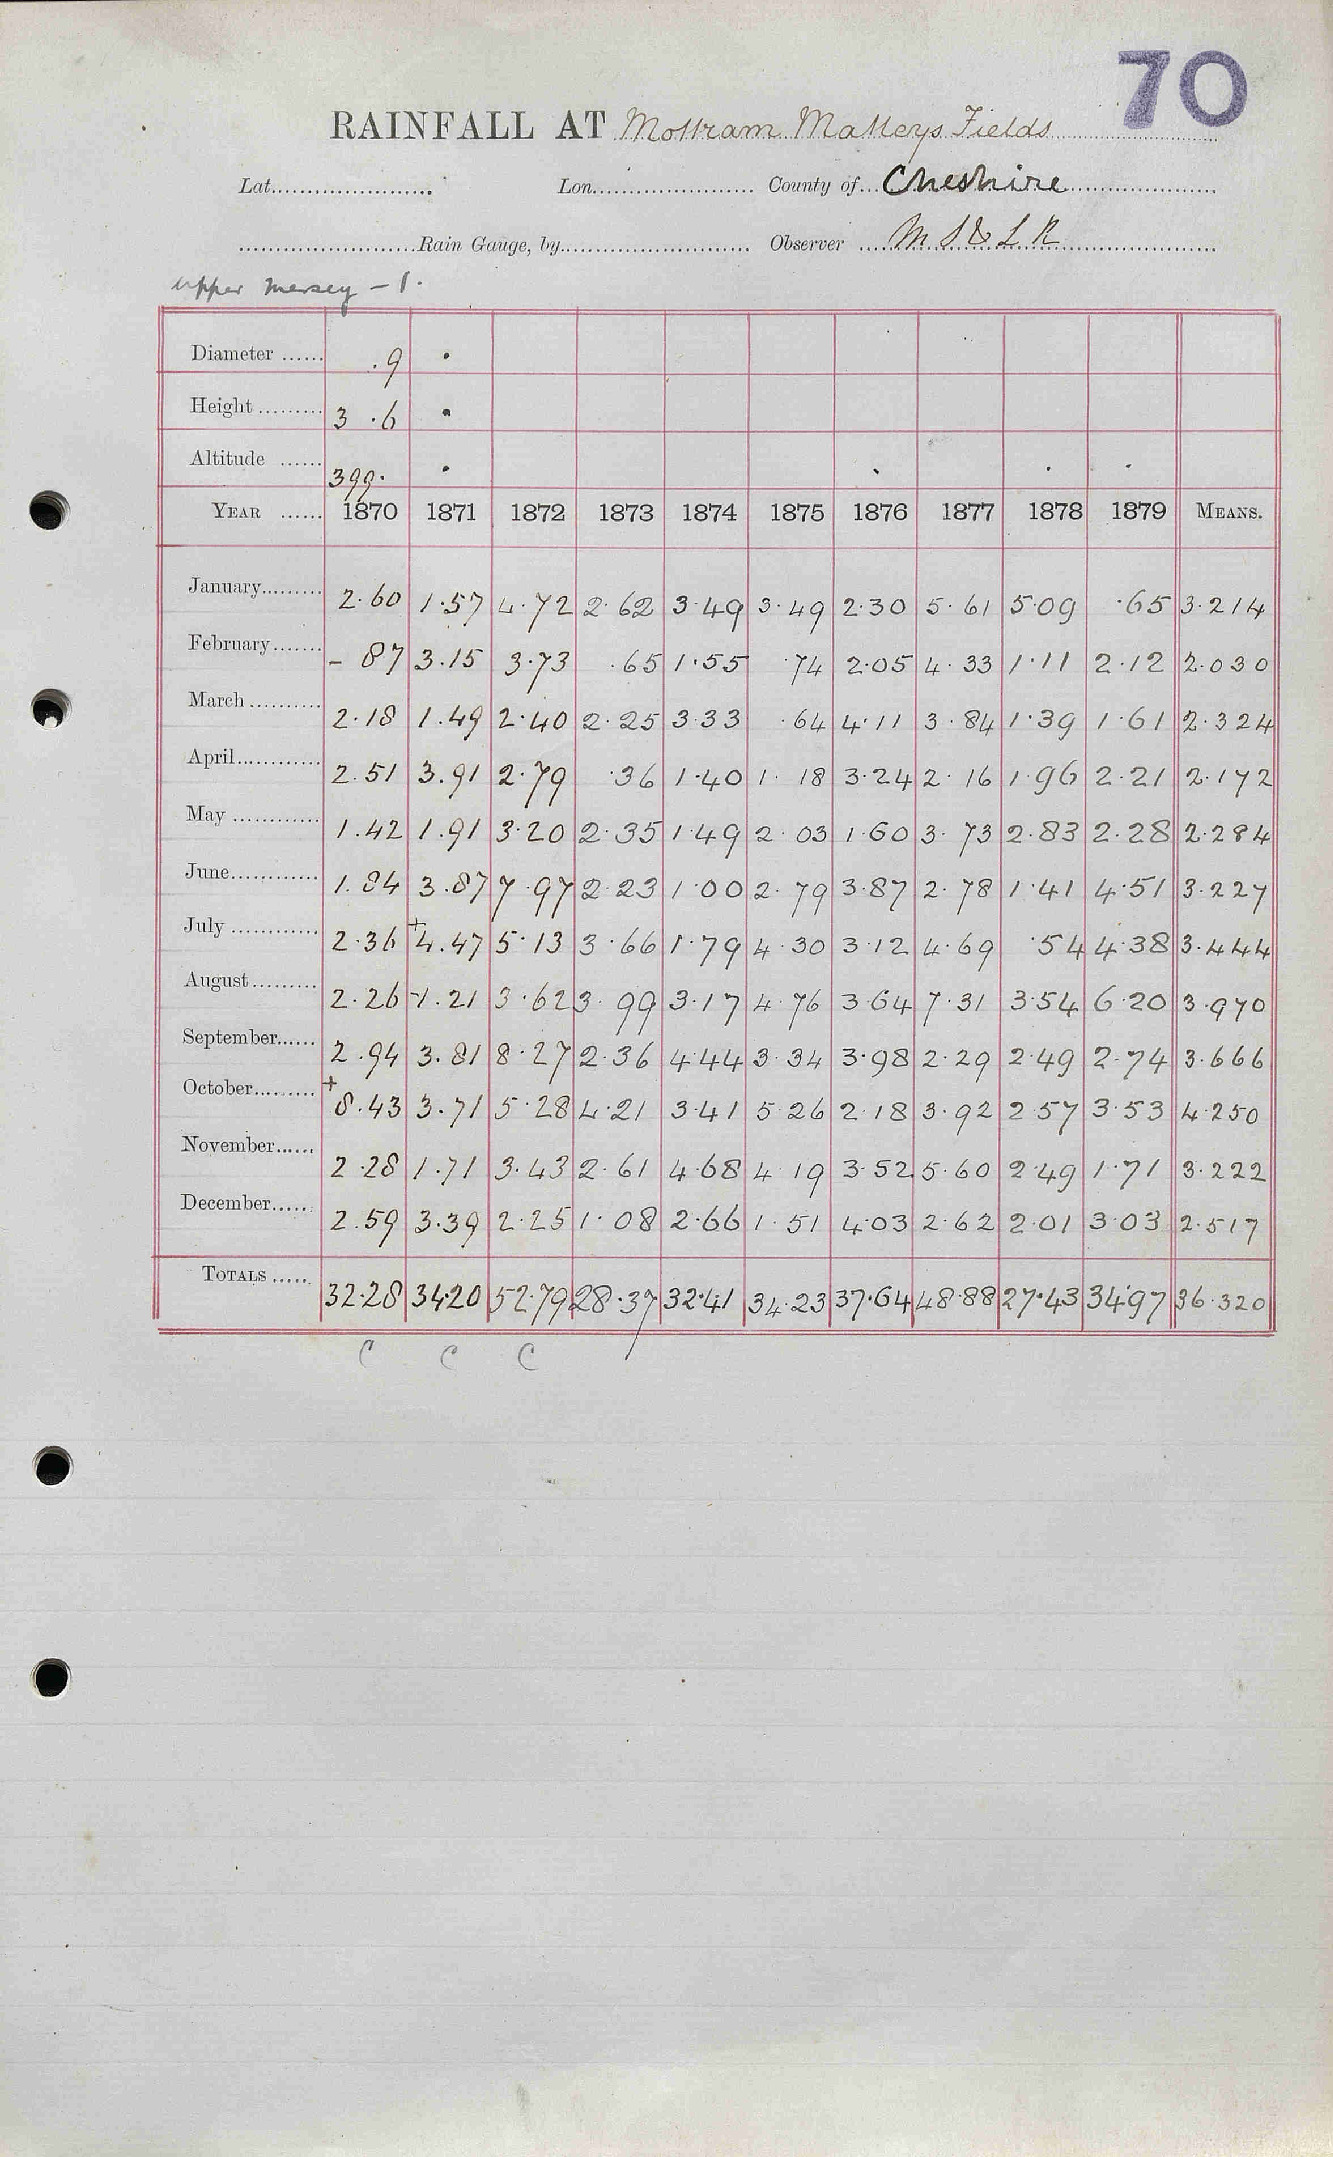 70
RAINFALL AT Mottram Matleys Fields
Lat. Lon. County of Cheshire
Rain Gauge, by Observer M S & L R
Upper Mersey - 1.
Diameter ...... .9 .
Height ......... 3 .6 .
Altitude ...... 399. . . . .
YEAR ...... 1870 1871 1872 1873 1874 1875 1876 1877 1878 1879 MEANS.
January......... 2.60 1.57 4.72 2.62 3.49 3.49 2.30 5.61 5.09 .65 3.214
February....... - 87 3.15 3.73 .65 1.55 .74 2.05 4.33 1.11 2.12 2.030
March .......... 2.18 1.49 2.40 2.25 3.33 .64 4.11 3.84 1.39 1.61 2.324
April............ 2.51 3.91 2.79 .36 1.40 1.18 3.24 2.16 1.96 2.21 2.172
May ............ 1.42 1.91 3.20 2.35 1.49 2.03 1.60 3.73 2.83 2.28 2.284
June............ 1.84 3.87 7.97 2.23 1.00 2.79 3.87 2.78 1.41 4.51 3.227
July ............ 2.36 +4.47 5.13 3.66 1.79 4.30 3.12 4.69 .54 4.38 3.444
August......... 2.26 -1.21 3.62 3.99 3.17 4.76 3.64 7.31 3.54 6.20 3.970
September...... 2.94 3.81 8.27 2.36 4.44 3.34 3.98 2.29 2.49 2.74 3.666
October......... +8.43 3.71 5.28 4.21 3.41 5.26 2.18 3.92 2.57 3.53 4.250
November...... 2.28 1.71 3.43 2.61 4.68 4.19 3.52 5.60 2.49 1.71 3.222
December...... 2.59 3.39 2.25 1.08 2.66 1.51 4.03 2.62 2.01 3.03 2.517
TOTALS ..... 32.28 34.20 52.79 28.37 32.41 34.23 37.64 48.88 27.43 34.97 36.320
C C C